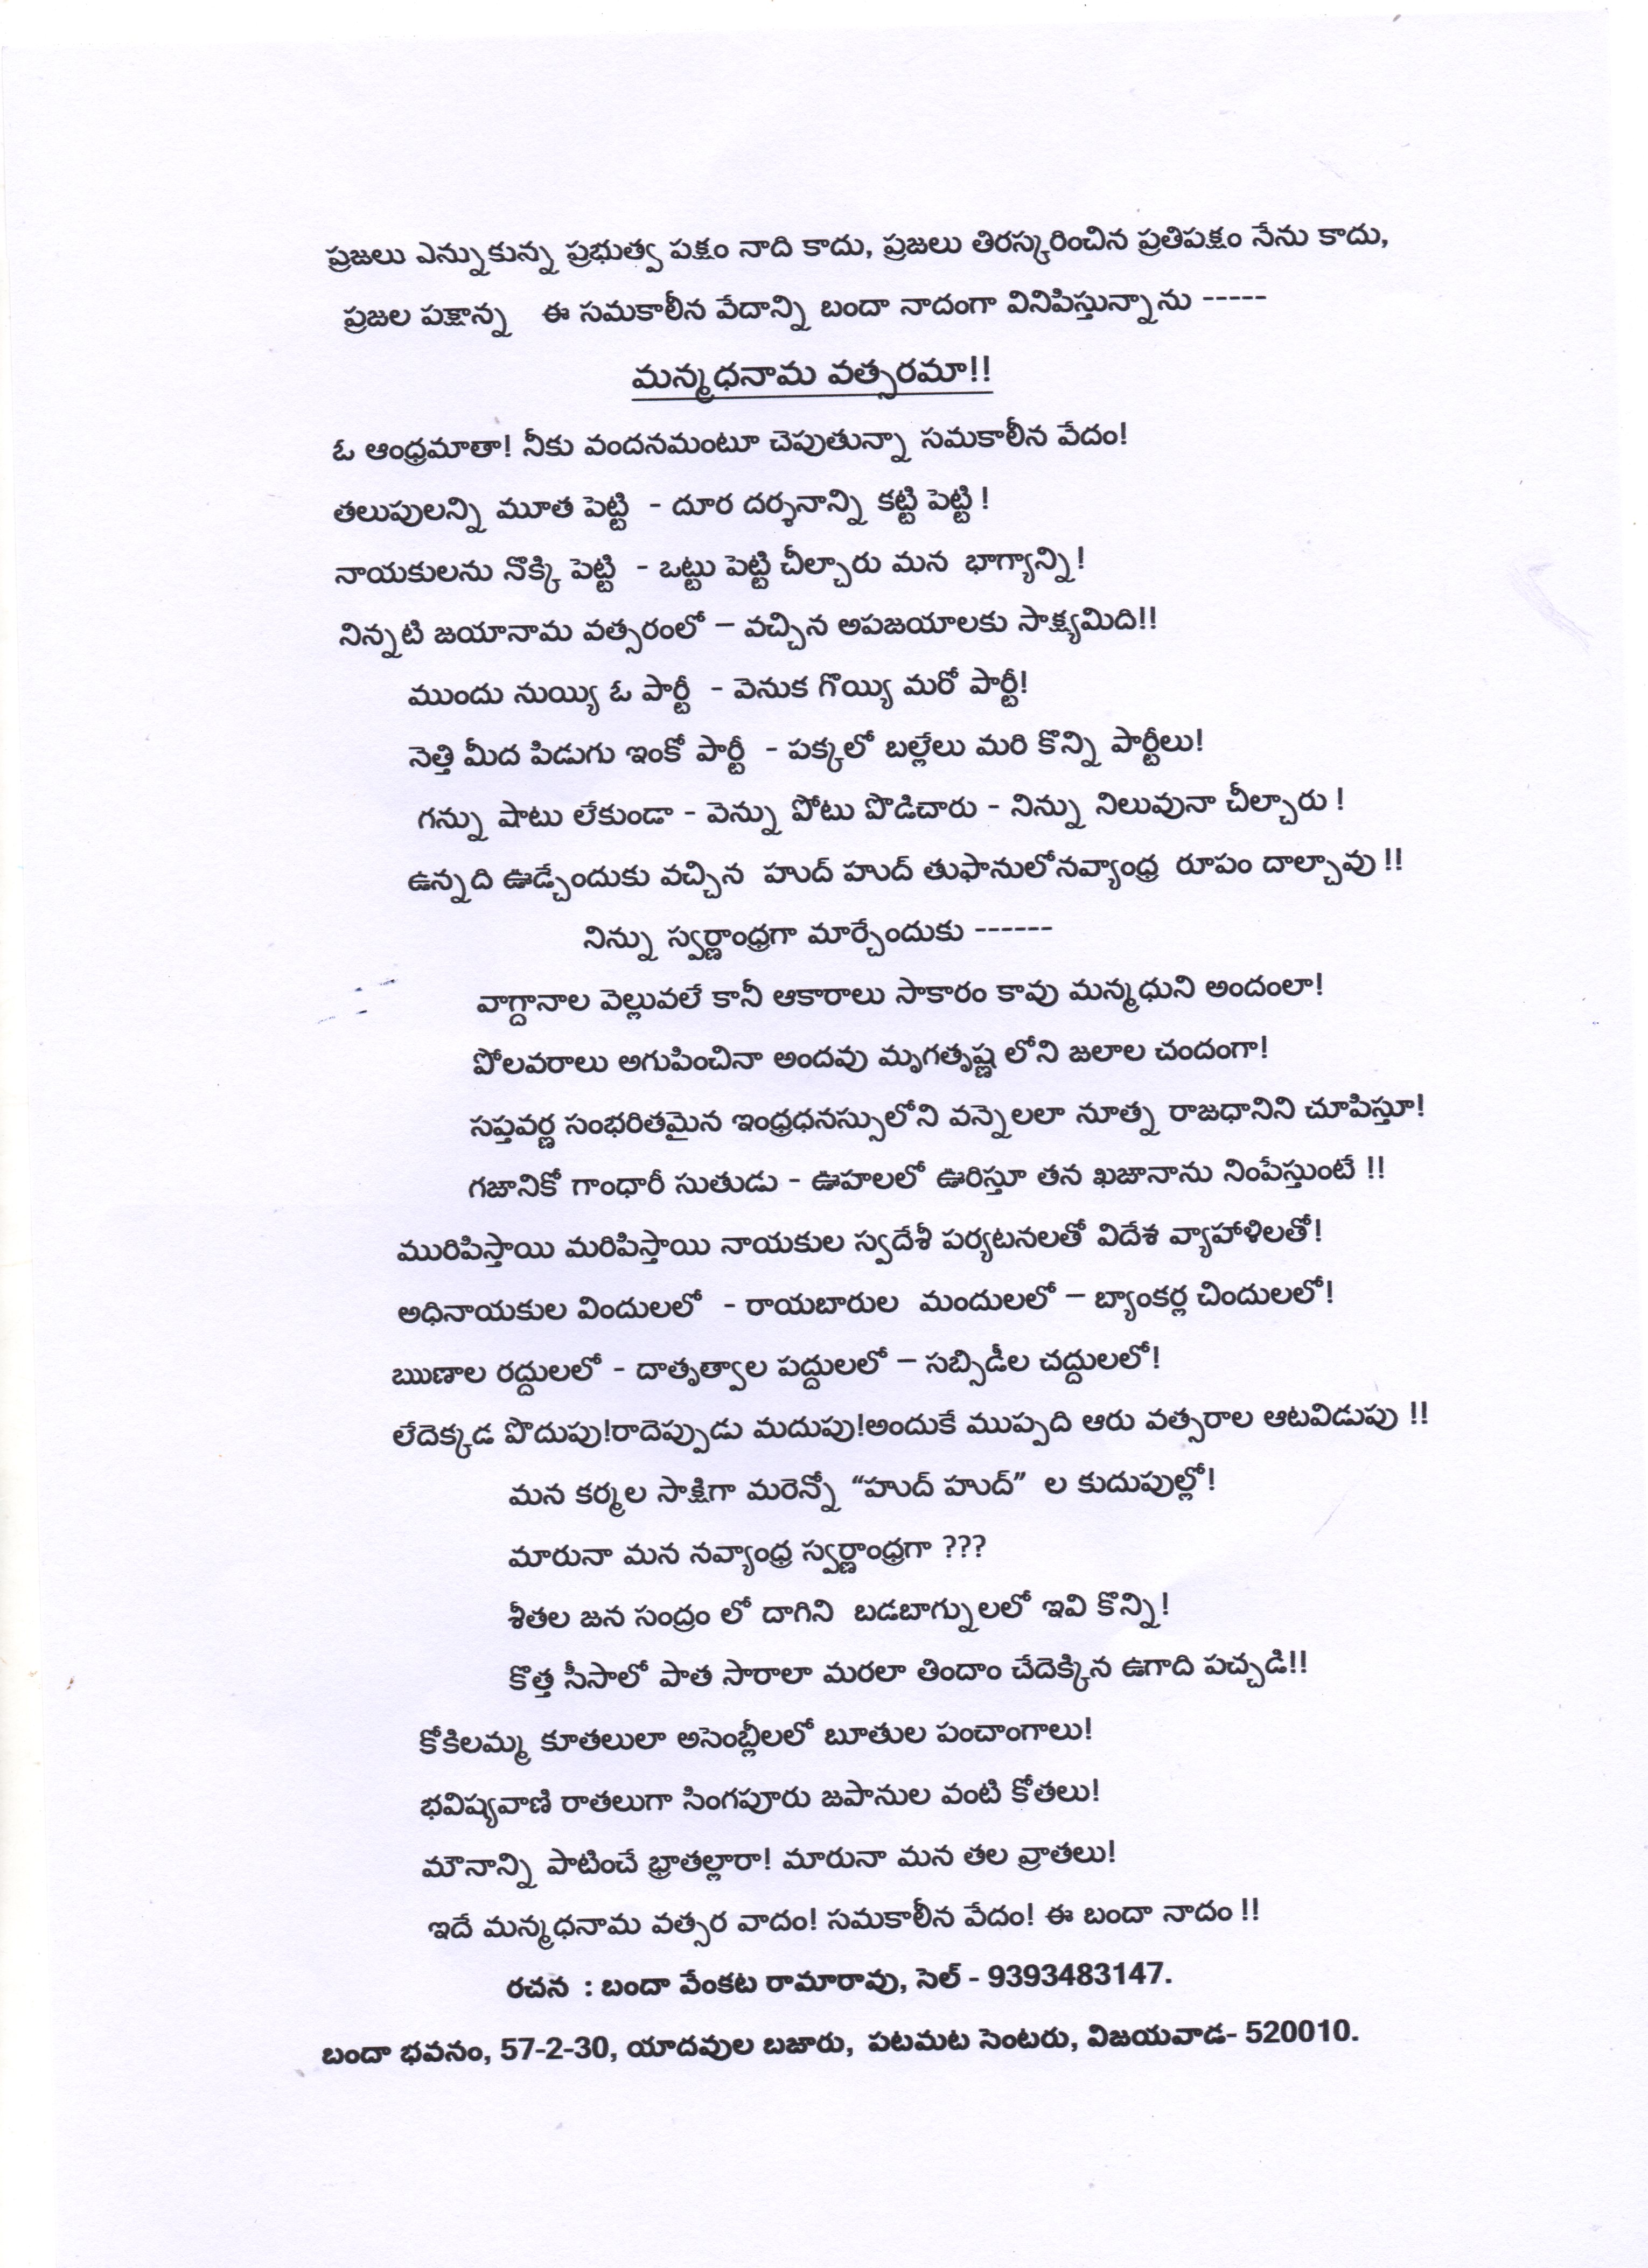 ప్రజలు ఎన్నుకున్న ప్రభుత్వ పక్షం నాది కాదు, ప్రజలు తిరస్కరించిన ప్రతిపక్షం నేను కాదు,
ప్రజల పక్షాన్న ఈ సమకాలీన వేదాన్ని బందా నాదంగా వినిపిస్తున్నాను -----
మన్మధనామ వత్సరమా!!
ఓ ఆంధ్రమాతా! నీకు వందనమంటూ చెపుతున్నా సమకాలీన వేదం!
తలుపులన్ని మూత పెట్టి - దూర దర్శనాన్ని కట్టి పెట్టి !
నాయకులను నొక్కి పెట్టి - ఒట్టు పెట్టి చీల్చారు మన భాగ్యాన్ని!
నిన్నటి జయానామ వత్సరంలో – వచ్చిన అపజయాలకు సాక్ష్యమిది!!
ముందు నుయ్యి ఓ పార్టీ - వెనుక గొయ్యి మరో పార్టీ!
నెత్తి మీద పిడుగు ఇంకో పార్టీ - పక్కలో బల్లేలు మరి కొన్ని పార్టీలు!
గన్ను షాటు లేకుండా - వెన్ను పోటు పొడిచారు - నిన్ను నిలువునా చీల్చారు !
ఉన్నది ఊడ్చేందుకు వచ్చిన హుద్ హుద్ తుఫానులోనవ్యాంధ్ర రూపం దాల్చావు !!
నిన్ను స్వర్ణాంధ్రగా మార్చేందుకు ------
వాగ్దానాల వెల్లువలే కానీ ఆకారాలు సాకారం కావు మన్మధుని అందంలా!
పోలవరాలు అగుపించినా అందవు మృగతృష్ణ లోని జలాల చందంగా!
సప్తవర్ణ సంభరితమైన ఇంధ్రధనస్సులోని వన్నెలలా నూత్న రాజధానిని చూపిస్తూ!
గజానికో గాంధారీ సుతుడు - ఊహలలో ఊరిస్తూ తన ఖజానాను నింపేస్తుంటే !!
మురిపిస్తాయి మరిపిస్తాయి నాయకుల స్వదేశీ పర్యటనలతో విదేశ వ్యాహాళిలతో!
అధినాయకుల విందులలో - రాయబారుల మందులలో – బ్యాంకర్ల చిందులలో!
ఋణాల రద్దులలో - దాతృత్వాల పద్దులలో – సబ్సిడీల చద్దులలో!
లేదెక్కడ పొదుపు!రాదెప్పుడు మదుపు!అందుకే ముప్పది ఆరు వత్సరాల ఆటవిడుపు !!
మన కర్మల సాక్షిగా మరెన్నో “హుద్ హుద్” ల కుదుపుల్లో!
మారునా మన నవ్యాంధ్ర స్వర్ణాంధ్రగా ???
శీతల జన సంద్రం లో దాగిని బడబాగ్నులలో ఇవి కొన్ని!
కొత్త సీసాలో పాత సారాలా మరలా తిందాం చేదెక్కిన ఉగాది పచ్చడి!!
కోకిలమ్మ కూతలులా అసెంబ్లీలలో బూతుల పంచాంగాలు!
భవిష్యవాణి రాతలుగా సింగపూరు జపానుల వంటి కోతలు!
మౌనాన్ని పాటించే భ్రాతల్లారా! మారునా మన తల వ్రాతలు!
ఇదే మన్మధనామ వత్సర వాదం! సమకాలీన వేదం! ఈ బందా నాదం !!
రచన : బందా వేంకట రామారావు, సెల్ - 9393483147.
బందా భవనం, 57-2-30, యాదవుల బజారు, పటమట సెంటరు, విజయవాడ- 520010.